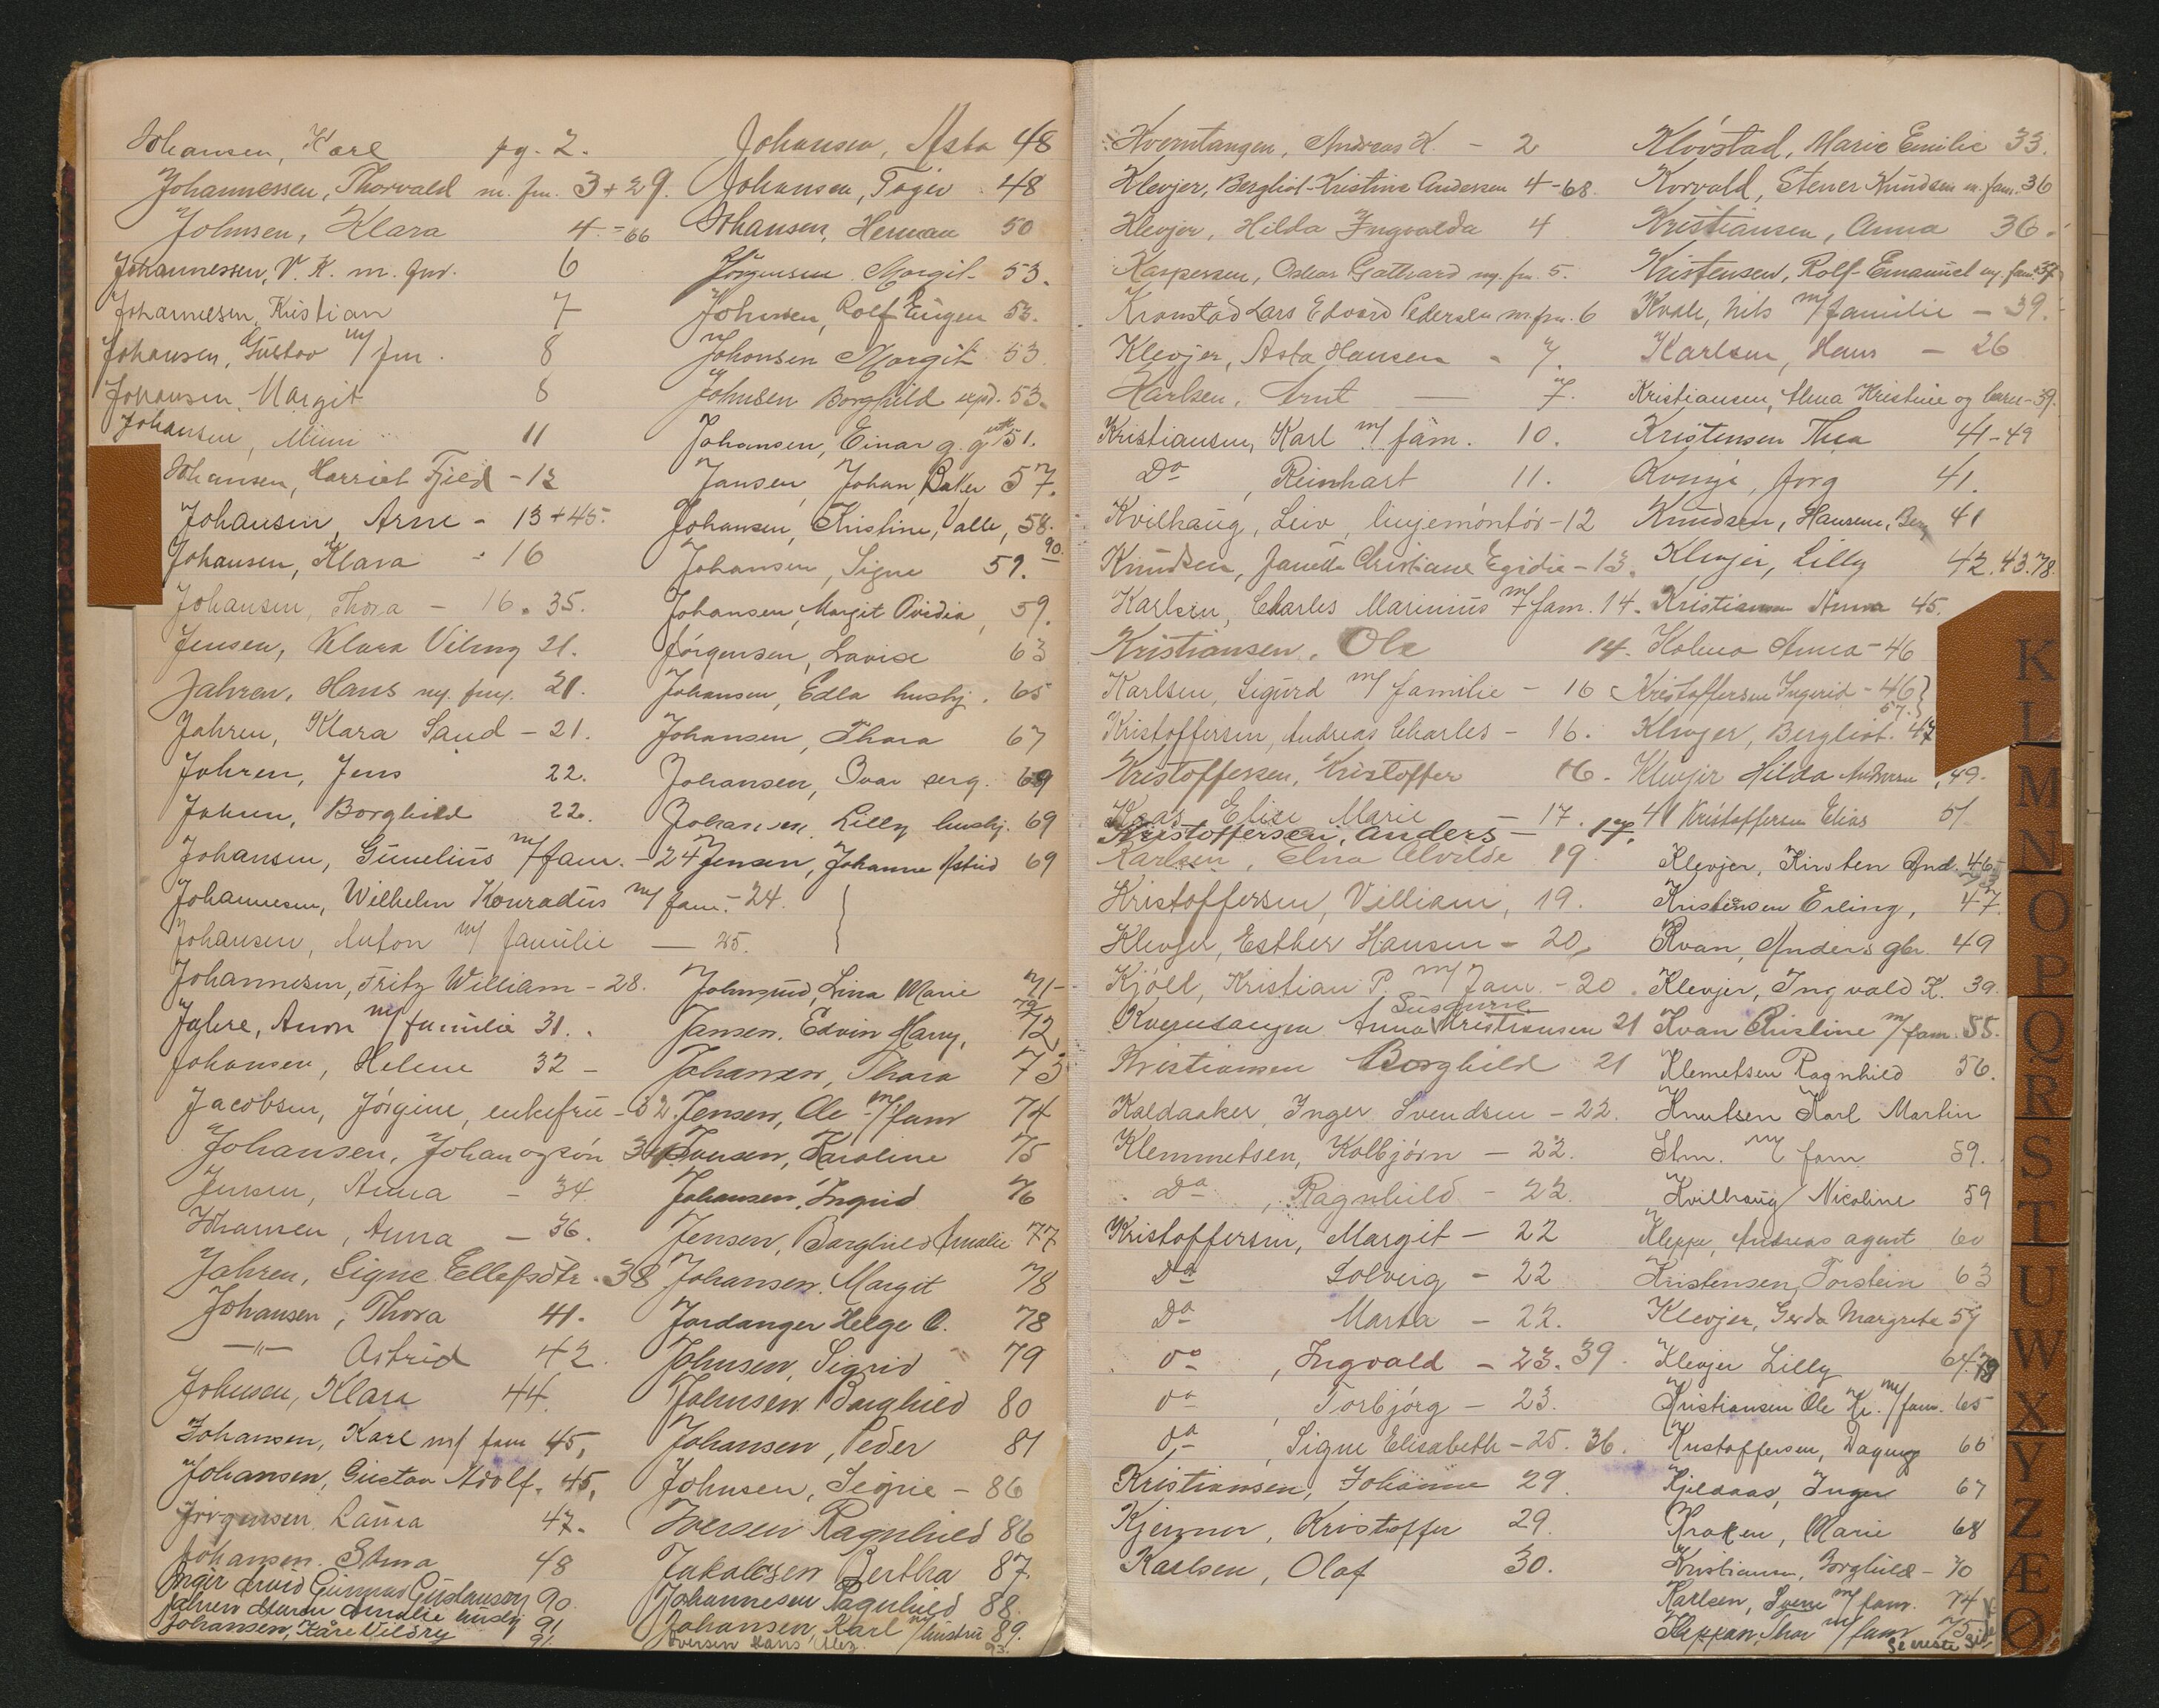 Johansen, Karl pg. 2.
Johannessen, Thorvald m. fm. 3+29.
Johnsen, Klara 4.=66
Johannessen, V. K. m. fm. 6
Johannesen, Kristian 7
Johansen, Gustav m/ fm. 8
Johansen, Margit 8
Johansen, Mimi 11
Johansen, Harriet Fjeld - 12
Johansen, Arne - 13+45.
Johansen, Klara - 16
Johansen, Thora - 16. 35.
Jensen, Klara Viling 21.
Jahren, Hans 21.
Jahren, Klara Sand - 21.
Jahren, Jens 22.
Jahren, Borghild 22.
Johansen, Gunelius m/fam. - 24
Johannesen, Wilhelm Konradus m/ fam. - 24.
Johansen, Anton m/ familie — 25.
Johannesen, Fritz William - 28.
Jahre, m/ familie 31.
Johansen, Helene 32 -
Jacobsen, Jörgine, enkefru - 32.
Johansen, Johan og sön
Jensen, Anna - 34
Johansen, Anna - 36.
Jahren, Signe Ellefsdtr. 38
Johansen, Thora 41.
—"— Astrid 42.
Johnsen, Klara 44.
Johansen, Karl m/ fam 45,
Johansen, Gustav Adolf. 45,
Jörgensen Laura 47.
Johansen. 48
Gustavsen 90.
Jahren Amalie husbj 91
Johansen, Kåre Vildry 91
Johansen, Asta 48
Johansen, 48
Johansen, Herman 50
Jörgensen Margit 53.
Johnsen, Rolf Eugen 53.
Johansen Margit 53
Johnsen Borghild 53.
Johansen, Einar g. g 51.
Jansen, Johan, Baker 57.
Johansen, Kristine, Valle, 58.
Johansen, Signe 59. 90.
Johansen, Margit Ovidia, 59.
Jörgensen, Lovise 63
Johansen, Edla husbj. 65
Johansen, Thora 67
Johansen, Ivar serg. 69
Johansen, Lilly husbj. 69
Jensen, Johanne Astrid 69
Lina Marie 71-
Jansen. Edvin Harry, 72
Johansen, Thora 73
Jensen, Ole m/fam 74
Karoline 75
Johansen, Ingrid 76
Jensen, Borghild Amalie 77
Johansen. Margit 78
Jordanger Helge O. 78
Johnsen, Sigrid 79
Johnsen Borghild 80
Johansen, Peder 81
Johnsen, Signe - 86
Iversen Ragnhild 86
Jakobsen Bertha 87.
Johannesen Ragnhild 88.
Johansen, Karl m/hustru 89.
Iversen Hans Alex. 93.
Kverntangen, Andreas K. - 2
Klevjer, Bergliot-Kristine Andersen 4-68.
Klevjer, Hilda Ingvalda 4
Kaspersen, Oskar Gathard 5.
Kronstad Lars Edvard Pedersen m. fm. 6
Klevjer, Asta Hansen - 7.
Karlsen, Arnt — 7.
Kristiansen, Karl m/ fam. 10.
Do, Reinhart 11.
Kvilhaug, Leiv, linjemöntör - 12
Knudsen, Janette Christiane Egidie - 13.
Karlsen, Charles Marinius m/ fam. 14.
Kristiansen, Ole 14.
Karlsen, Sigurd m/ familie - 16
Kristoffersen, Andreas Charles - 16.
Kristoffersen, Kristoffer 16.
Kaas Elise Marie - 17.
Kristoffersen, Anders - 17.
Karlsen, Elna Alvilde 19
Kristoffersen, Villiam, 19.
Klevjer, Esther Hansen - 20,
Kjöll, Kristian P. m/ fam. - 20.
Susanne
Kverntangen Anna Kristiansen 21
Kristiansen Borghild 21
Kaldaaker, Inger Svendsen - 22.
Klemmetsen, Kolbjörn - 22.
Do, Ragnhild - 22.
Kristoffersen, Margit - 22
Do Solveig - 22
Do Marta - 22.
Do, Ingvald - 23. 39.
Do, Torbjörg - 23.
Do, Signe Elisabeth - 25. 36.
Kristiansen, Johanne 29.
Kjemner, Kristoffer 29.
Karlsen, Olaf 30.
Klövstad, Marie Emilie 33.
Korvald, Stener Knudsen m. fam. 36
Kristiansen, Anna 36.
Kristensen, Rolf-Emanuel fam. 37
Kvale, Nils m/familie - 39.
Karlsen, Hans - 26
Kristiansen, Alma Kristine og barn - 39.
Kristensen Thea 41-49
41.
Knudsen, Hansine, 41
Klevjer, Lilly 42. 43. 78.
Kristiansen Anna 45.
Holmo Anna - 46
Kristoffersen Ingrid - 46} 57.
Klevjer, Bergliot. 47
Klevjer Hilda Andersen, 49.
Kristoffersen Elias 51
Klevjer, Kirsten And. 46
Kristensen Erling, 47.
Kvan, Anders gbr. 49
Klevjer, Ingvald K. 39.
Kvan Kristine m/fam. 55.
Klemetsen Ragnhild 56.
Knutsen Karl Martin
Stm. m/ fam 59.
Kvilhaug Nicoline 59
Kleppe, Andreas agent 60
Kristensen, Torstein 63
Klevjer, Gerda Margrete 59
Klevjer Lilly 64. 79
Kristiansen Ole Kr. m/fam. 65
Kristoffersen, Dagny 66
Kjeldaas, Inger 67
Kraken, Marie 68
Kristiansen, Borghild - 70
Karlsen, Svene m/ fam. 74
Keppan, Thor m/ fam 75
Se neste side
K
L
M
N
O
P
Q
R
S
T
U
W
X
Y
Z
Æ
Ø